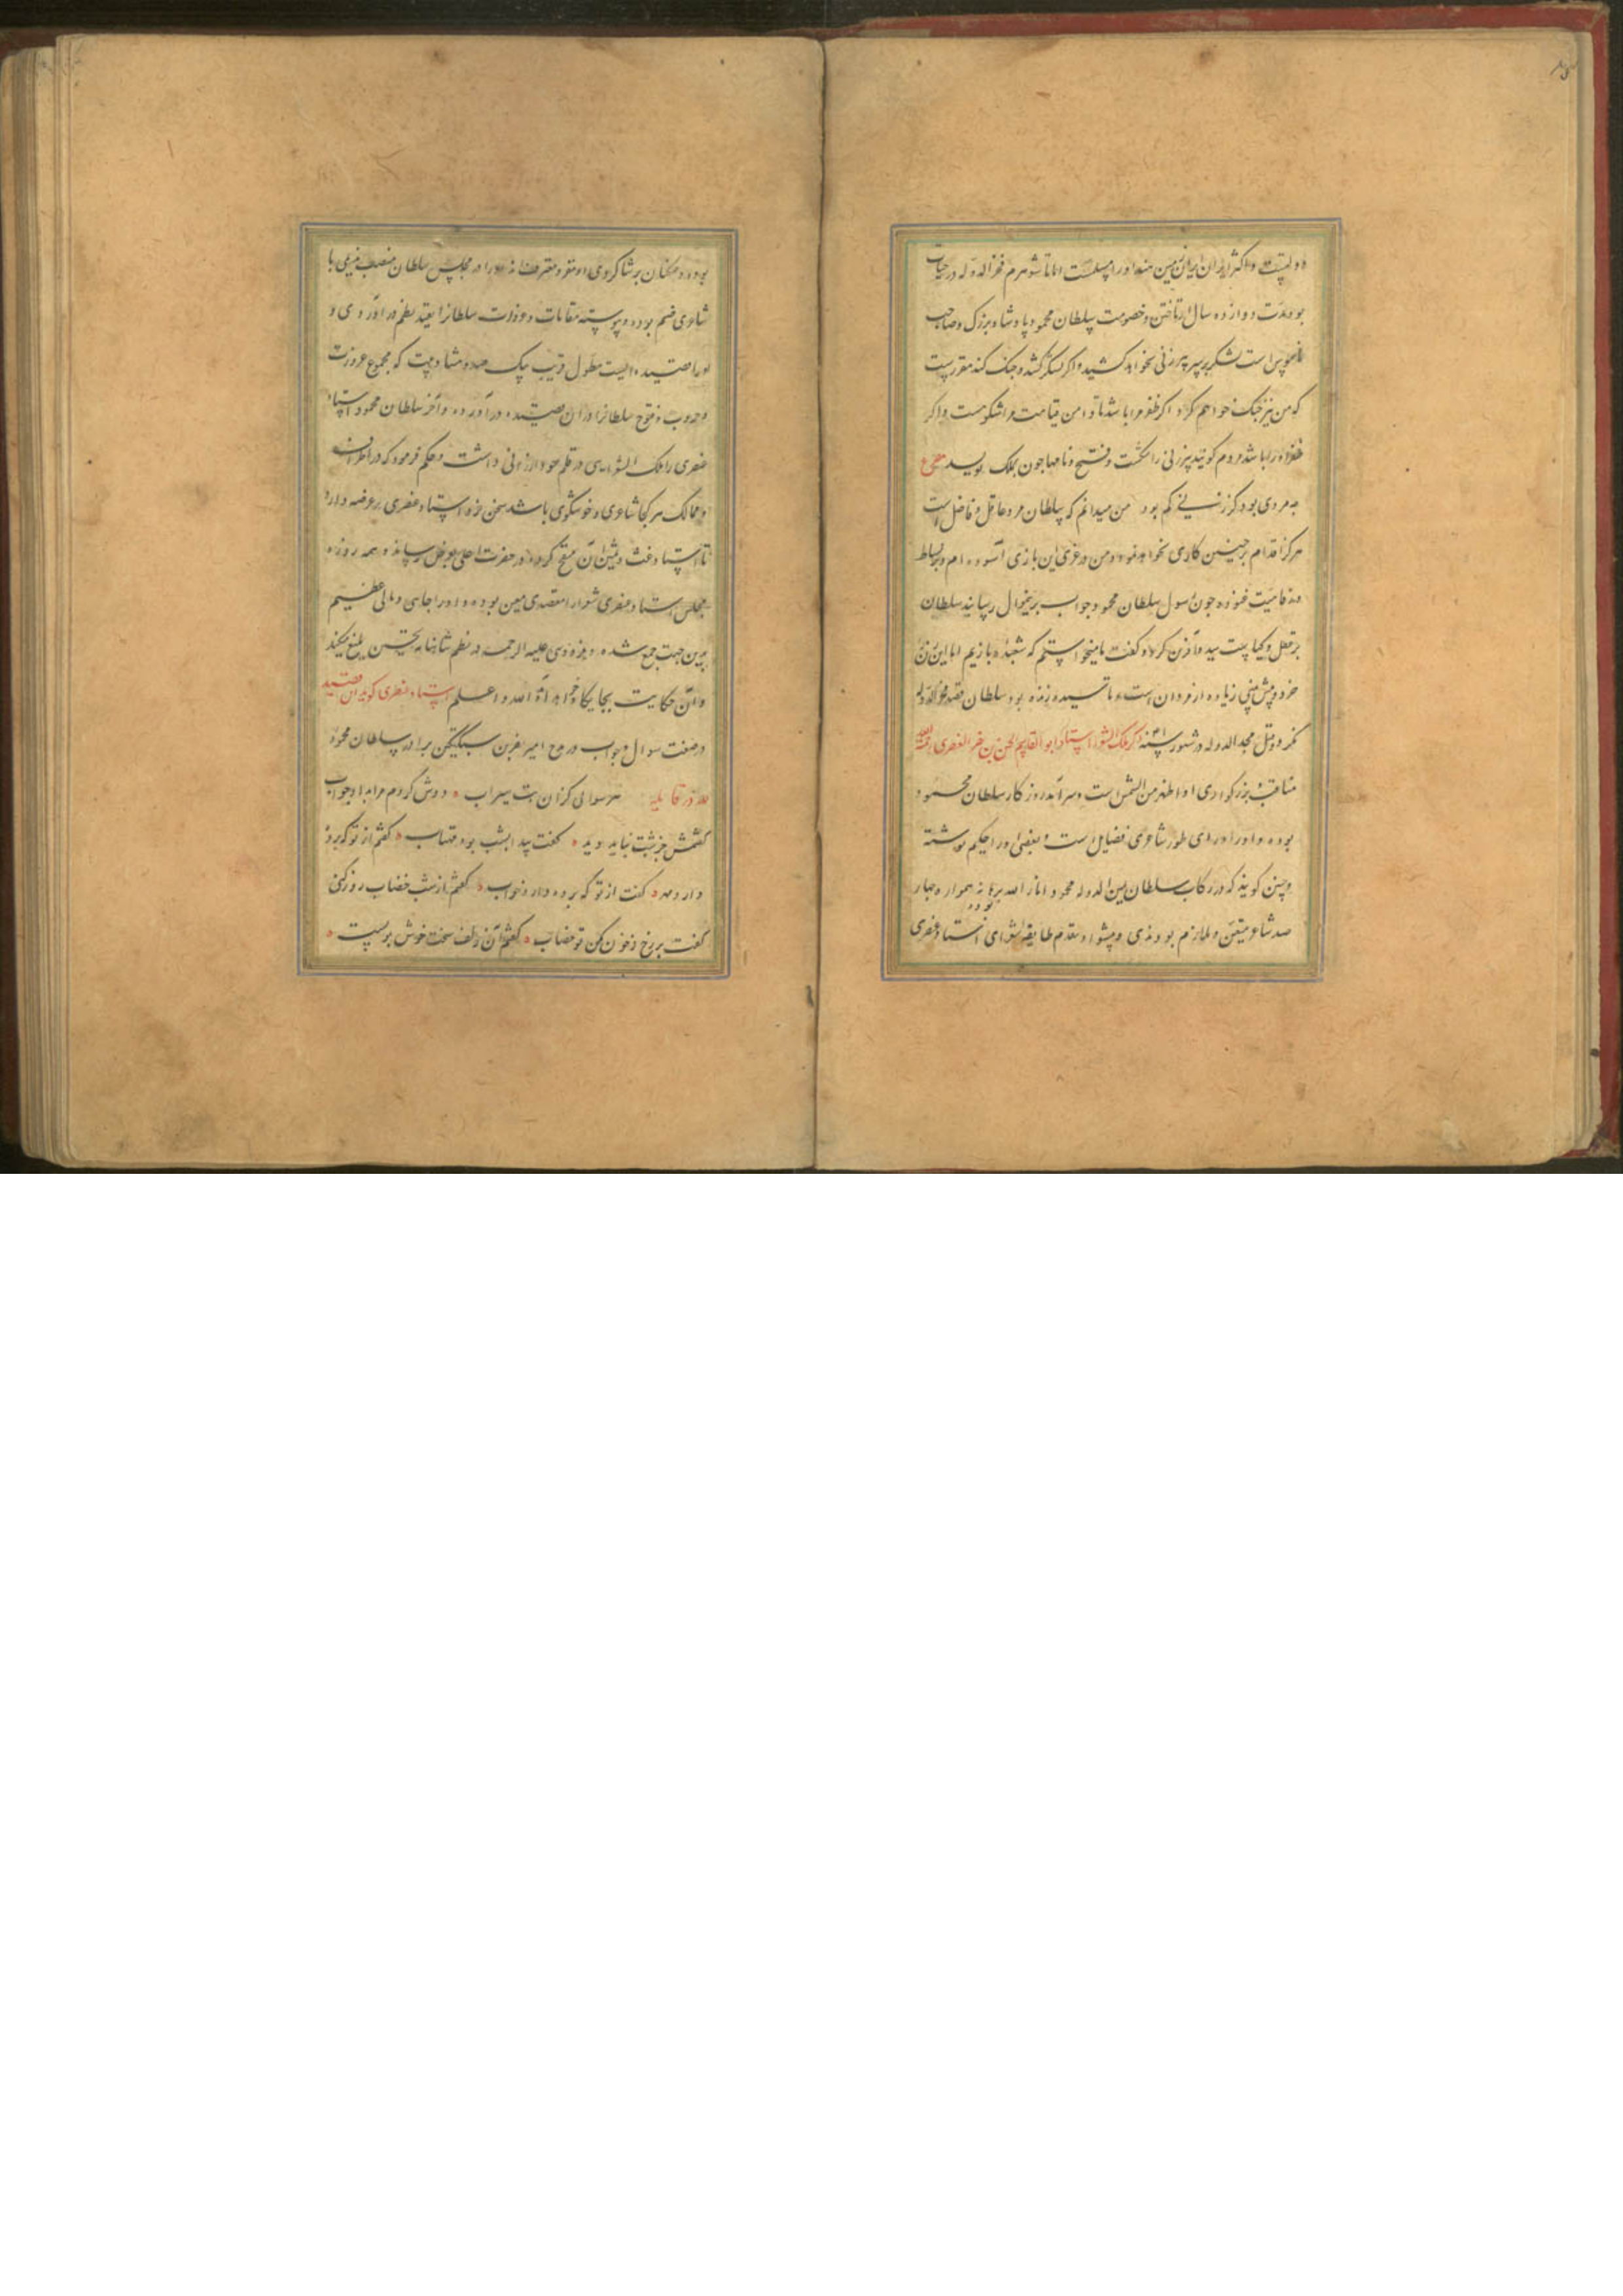 دولتیست و اکثر ایران زمین مسلمست اما تا شوهرم فخر الدوله در حیات
بود مدت دوازده سال از تاختن و خصومت سلطان محمود پادشاه بزرگ و صاحب
ناموس است لشکر بر سر پیرزنی نخواهد کشید و اگر لشکر کشد و جنک کند مقررست
که من نیز جنک خواهم کرد اگر ظفر مرا باشد تا دامن قیامت مرا شکوهست و اگر
ظفر او را باشد مردم گویند پیرزنی را شکست و فتح نامها چون بملک نویسد مصرع
چه مردی بود کز زنی کم بود من میدانم که سلطان مرد عاقل و فاضل است
هرگز اقدام بر چنین کاری نخواهد نمود و من در غری این بازی آسوده ام و بر بساط
رفاهیت غنوده چون رسول سلطان محمود جواب بر این منوال رسانید سلطان
بر عقل و کیاست سیده آفرین کرد و گفت ما میخواستیم که شعبده بازیم اما این زن
خرد و پیش بینی زیاده از مردان است و تا سیده زنده بود سلطان قصد فخر الدوله
نکرد و قتل مجد الدوله در شهور سنه ذکر ملک الشعرا استاد ابو القاسم الحسن بن العنصری رحمه الله
مناقب و بزرگواری او اظهر من الشمس است و سرآمد روزکار سلطان محمود
بوده و او را ورای طور شاعری فضایل است و بعضی او را حکیم نوشته
و چنین گویند که در رکاب سلطان یمین الدوله محمود انار الله برهانه همواره چهار
صد شاعر متعین ملازم بودندی و پیشوا و مقدم طایفه شعرای استاد عنصری
بوده و همکنان بر شاکردی او مقر و معترف اند و او را در مجلس سلطان منصب ندیمی با
شاعری ضم بوده و پیوسته مقامات و غزوات سلطانرا بقید نظم در آوردی و
او را قصیده ایست مطول قریب یک صد و هشتاد بیت که مجموع غزوات
و حروب و فتوح سلطانرا در آن قصیده در آورده و آخر سلطان محمود استاد
عنصری را ملک الشعرایی در قلم خود ارزانی داشت و حکم فرمود که در اطراف
و ممالک هر کجا شاعری و خوشگوی باشد سخن خود بر استاد عنصری عرضه دارد
تا استاد غث و ثمین آن منقح کرده در حضرت اعلی بعرض رساند و همه روزه
مجلس استاد عنصری شعرا را مقصدی معین بوده و او را جاهی و مالی عظیم
بدین جهت جمع شده و فردوسی علیه الرحمه در نظم شاهنامه تحسین بلیغ میکند
و آن حکایت بجایگاه خواهد آمد ان شا الله و اعلم استاد عنصری گوید این قصیده
در صنعت سوال و جواب در مدح امیر نصر بن سبکتکین برادر سلطان محمود
لله در قایله هر سوالی کزان لب سیراب ◦ دوش کردم مرا بداد جواب
گفتمش جز شبت نباید دید ◦ گفت پیدا بشب بود مهتاب ◦ گفتم از تو که برد
دارد مهر ◦ گفت از تو که برده دارد خواب ◦ گفتم از شب خضاب روز کنی
گفت بر رخ ز خون مکن تو خضاب ◦ گفتم آن زلف سخت خوش بویست ◦